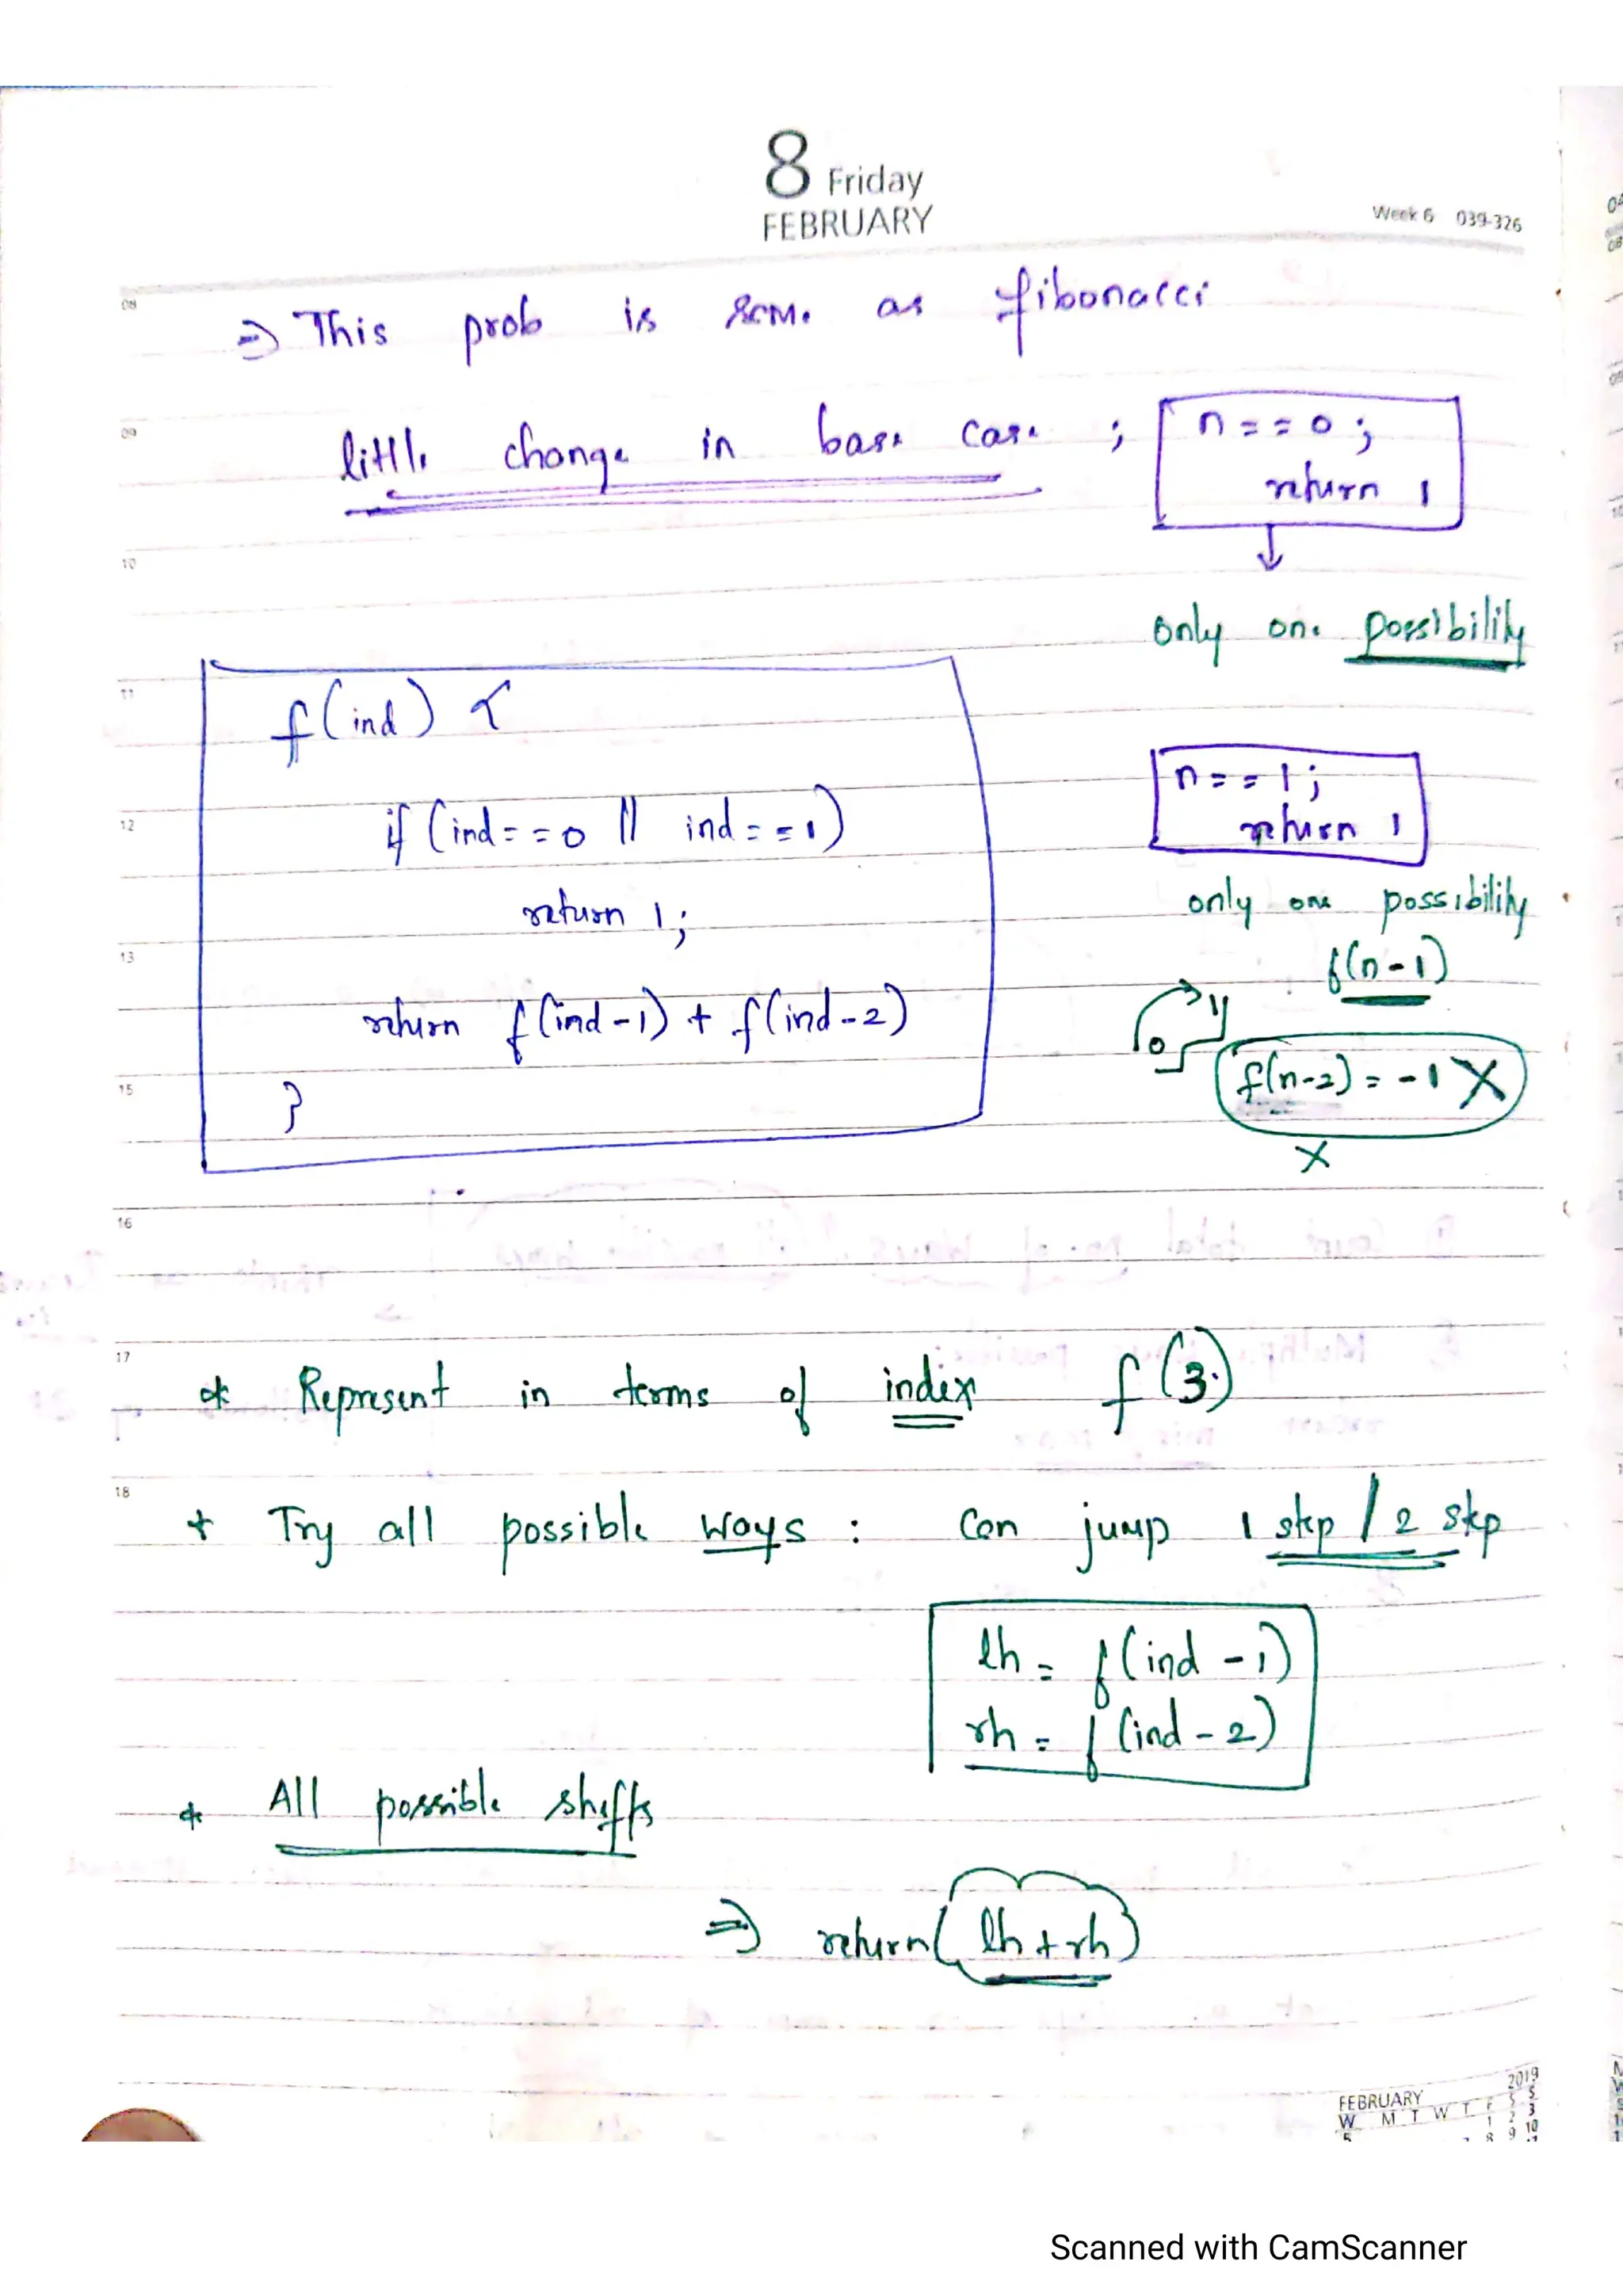 8 Friday
FEBRUARY
Week 6 039-326
08
⇒ This prob is same as fibonacci
09
little change in base case ; n==0;
return 1
↓
10
only one possibility
11
f(ind) {
n==1;
12
if (ind==0 || ind==1)
return 1
return 1;
only one possibility
13
f(n-1)
return f(ind-1) + f(ind-2)
0 1
f(n-2) = -1 X
15
}
X
16
17
* Represent in terms of index f(3)
18
* Try all possible ways : Can jump 1 step / 2 step
lh = f(ind-1)
rh = f(ind-2)
* All possible stuffs
⇒ return(lh+rh)
2019
FEBRUARY
W M T W T F S S
1 2 3
8 9 10
Scanned with CamScanner